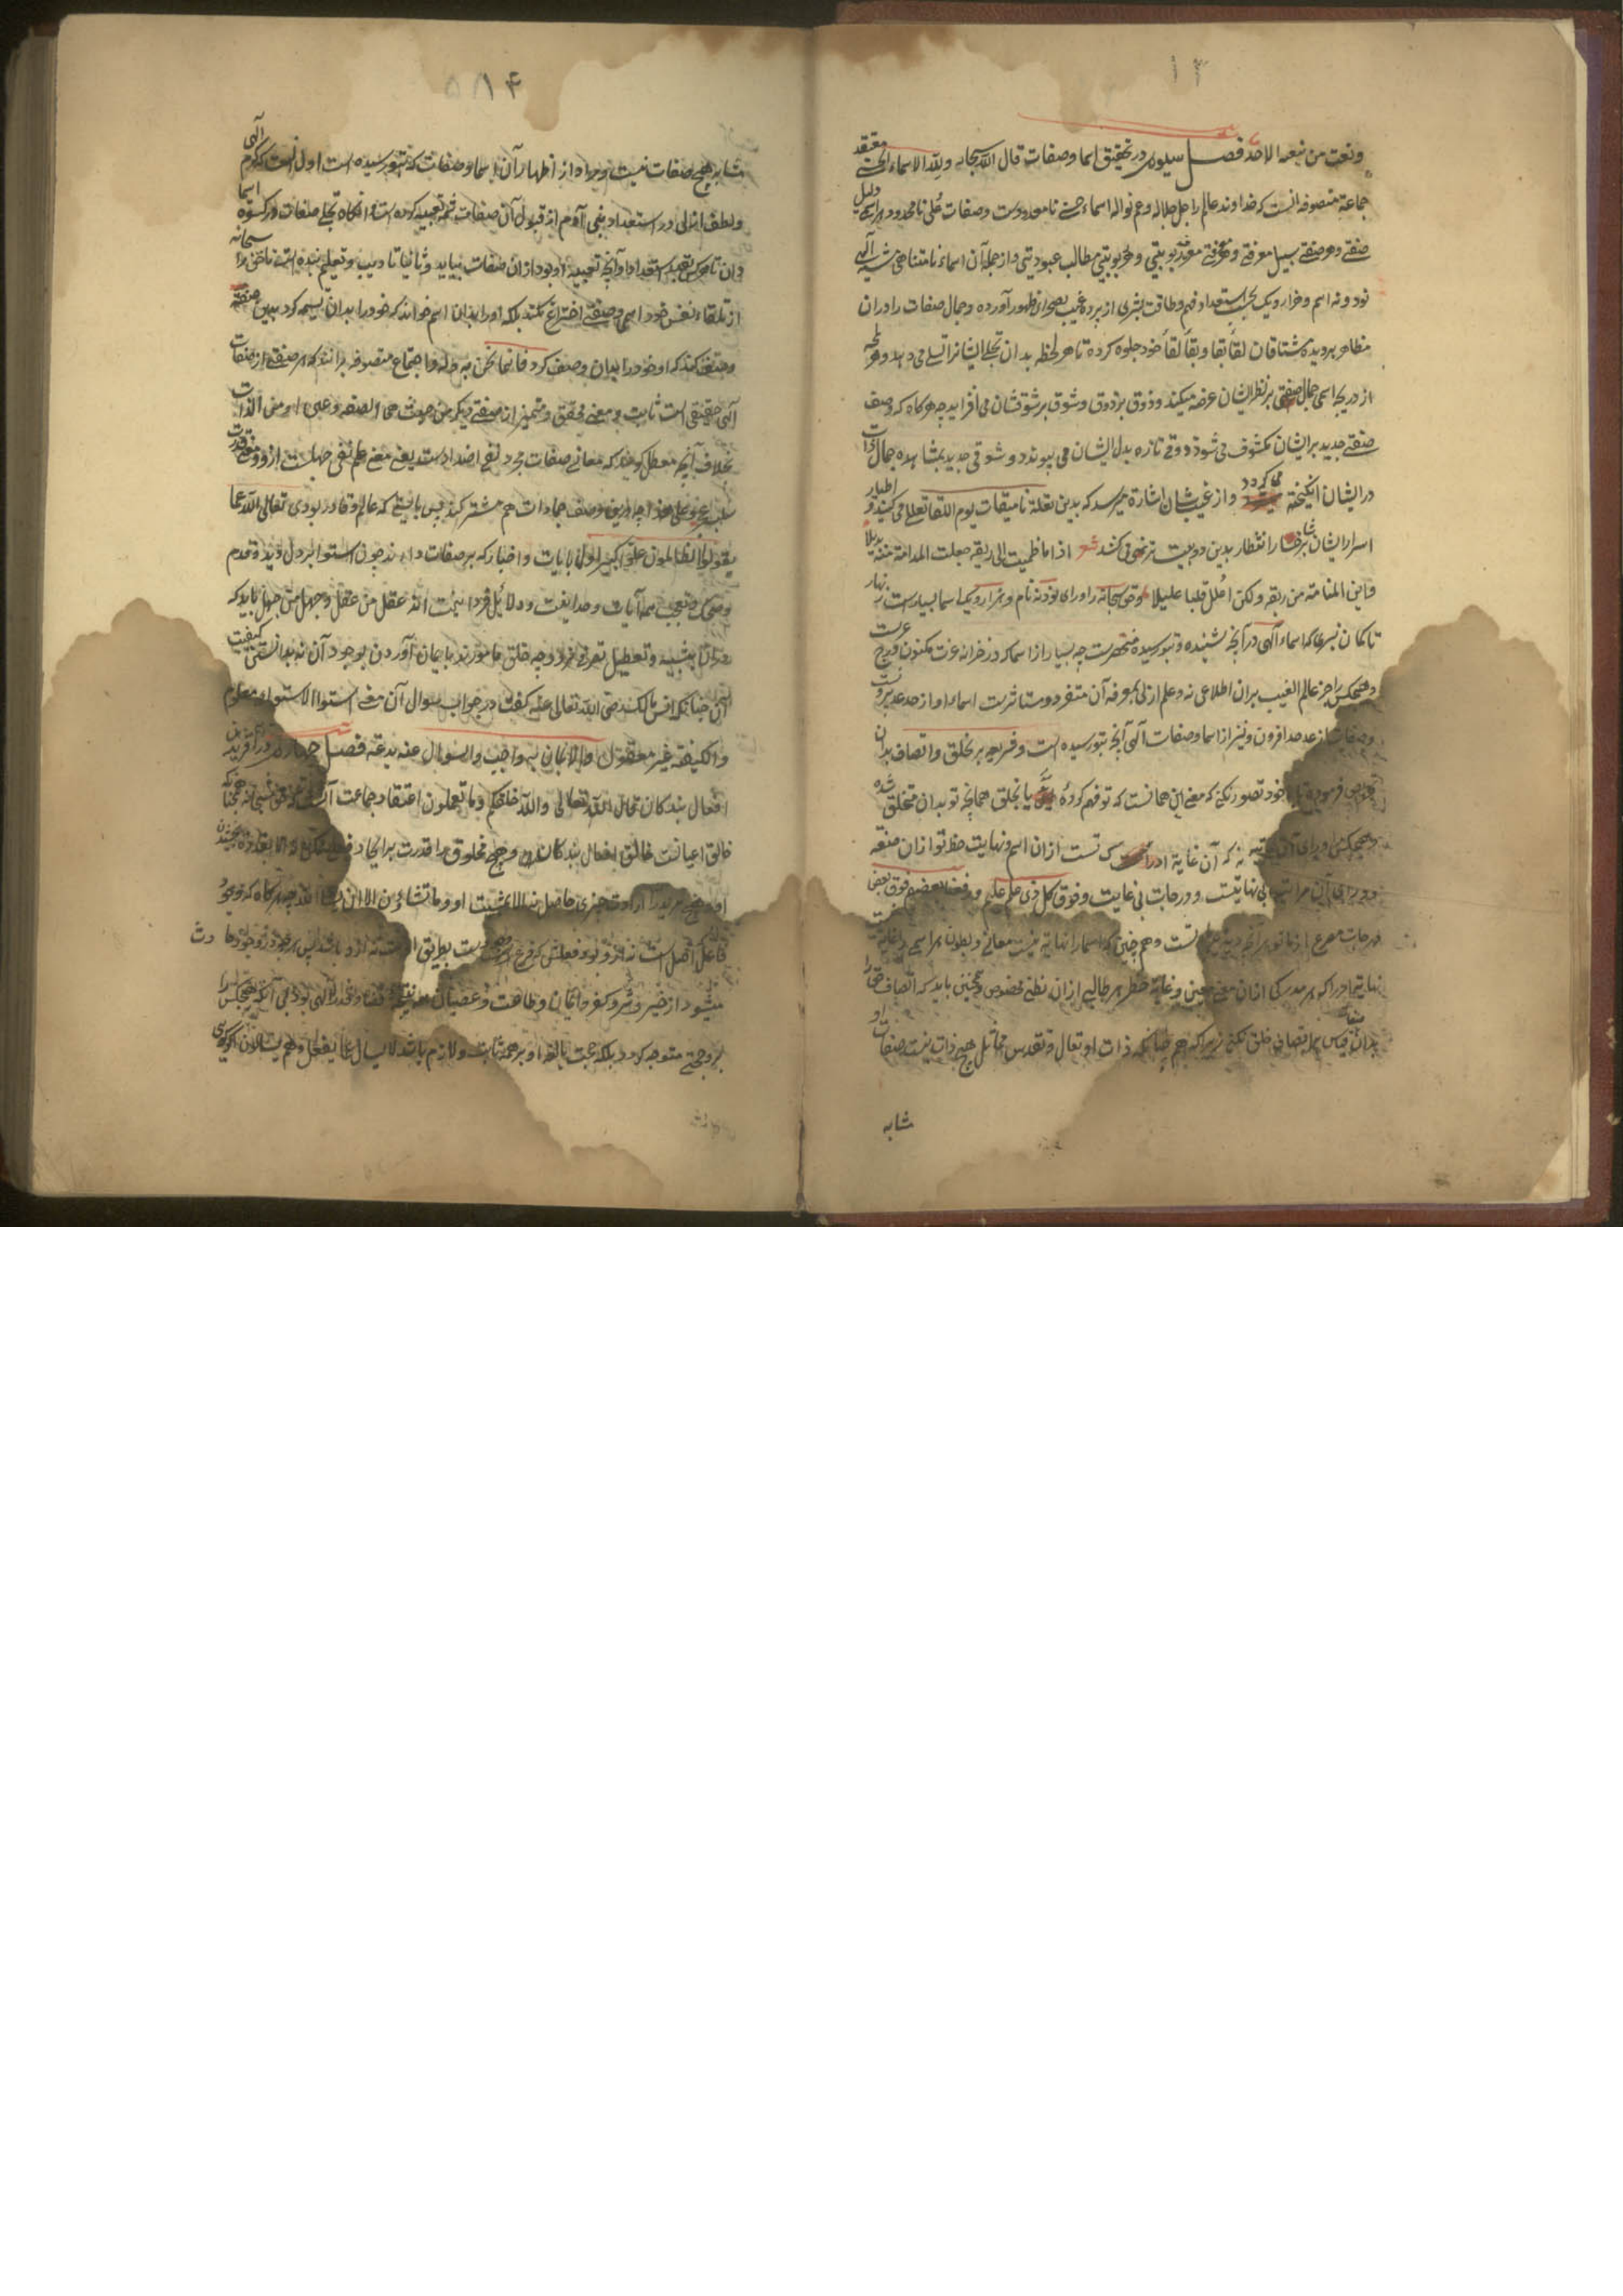 ۱۳
ونعت من نعمه الاحد فصل سیوم در تحقیق اسما وصفات قال الله سبحانه ولله الاسماء الحسنی معتقد
جماعة متصوفه انست که خداوند عالم را جل جلاله وعم نواله اسماء حسنی نامعدودست وصفات علی نامحدود هر اسمی دلیل
صفتی وهر صفتی سبیل معرفتی و هر معرفتی معرف ربوبیتی و هر ربوبیتی مطالب عبودیتی واز جمله آن اسماء نامتناهی مشیت الهی
نود ونه اسم و هزار ویک بحسب استعداد فهم وطاقت بشری از پرده غیب بصحرای ظهور آورده وجمال صفات را دران
مظاهر بر دیده مشتاقان لقا بقا وبقا لقا خود جلوه کرده تا هر لحظه بدان تجلی ایشانرا تسلی می دهد وهر لمحه
از دریچه اسمی جمال صفتی بر نظر ایشان عرضه میکند وذوق بر ذوق وشوق بر شوقشان می افزاید چه هرگاه که وصف
صفتی جدید بر ایشان مکشوف می شود ذوقی تازه بدل ایشان می پیوندد وشوقی جدید بمشاهده جمال ذات
در ایشان انگیخته می گردد واز غیب شان اشارة میرسد که بدین تعلة تا میقات یوم اللقا تعللی می کنید و اظهار
اسرار ایشان بر خشار انتظار بدین دو بیت ترنمی می کند شعر اذا ما ظمیت الی ریقه جعلت المدامة منه بدیلا
واین المدامة من ریقه ولکن اعلل قلبا علیلا وحق سبحانه را ورای نود نه نام و هزار ویک اسما بسیارست زنهار
تا گمان نبری که اسماء الهی در آنچه شنیده و بتو رسیده منحصرست چه بسیار از اسما که در خزانه عزت مکنون و درج
وهیچکس را جز عالم الغیب بران اطلاعی نه وعلم ازلی بمعرفه آن متفرد ومستاثرست اسماء او از حد عد بیرونست
وصفاتش از عد حد افزون ونیز از اسما وصفات الهی آنچه بتو رسیده است وذریعه بر تخلق واتصاف بدان
فرموده تا خود تصور نکنی که معنی این همانست که تو فهم کرده یا تخلق همانچه تو بدان متخلق شده
وهیچ مکنی ورای آن مرتبه نه که آن غایة ادراک تست ازان اسم ونهایت حظ تو ازان صفته
وورای آن مراتب بی نهایتست ودرجات بی غایت وفوق کل ذی علم علیم ورفعنا بعضهم فوق بعض
درجات وهم چنین که اسما را نهایة نیست معانی وبطون هر اسمی را غایة
نهایة ادراک هر مدرکی ازان معنی معین وغایة حظ هر طالبی ازان نطنی مخصوص وهمچنین باید که اتصاف حق را
بدان قیاس بر اتصاف خلق نکنی زیرا که هم چنانکه ذات او تعالی وتقدس مماثل هیچ ذات نیست صفات او
مشابه
مشابه هیچ صفات نیست ومراد از اظهار آن اسما وصفات که بتو رسیده است اول انست که کرم الهی
ولطف ازلی در استعداد بنی آدم از قبول آن صفات تعبیه کرده است تا انگاه تجلی صفات در کسوة اسما
دران تا هرکس بقدر استعداد او وآنچه تعبیه او بود ازان صفات بیابد وثانیا تادیب وتعلیم بنده است تا حق را سبحانه
از تلقاء نفس خود اسمی وصفتی اختراع نکند بلکه او را بدان اسم خواند که خود را بدان تسمیه کرد بدین صفته
وصف کند که او خود را بدان وصف کرد فانما نحن به وله واجماع متصوفه برانند که هر صفتی از صفات
الهی حقیقی است ثابت ومعنی محقق ومتمیز از صفتی دیگر من حیث هی الصفه وعین او من الذات
بخلاف آنچه معطل گوید که معانی صفات مجرد نفی اضدادست یعنی معنی علم نفی جهلست ازو ومعنی قدرت
سلب عجز وعلی هذا چه درین وصف جمادات هم مشترکند پس بایستی که عالم وقادر بودی تعالی الله عما
یقول الظالمون علوا کبیرا واما آیات واخبار که بر صفات دالند چون استوا ونزول وید وقدم
وضحک وتعجب همه آیات وحدانیت ودلائل فردانیت اند عقل من عقل وجهل من جهل باید که
دران تشبیه وتعطیل تصرف نرود وچه خلق مامورند بایمان آوردن بوجود آن نه بدانستن کیفیت
آن چنانکه انس مالک رضی الله تعالی عنه گفت در جواب سوال آن معنی استوا الاستواء معلوم
والکیفیة غیر معقول والایمان به واجب والسوال عنه بدعة فصل چهارم در آفریدن
افعال بندگان قال الله تعالی والله خلقکم وما تعملون اعتقاد جماعت آنست که حق سبحانه همچنانکه
خالق اعیانست خالق افعال بندگانست وهیچ مخلوق را قدرت بر ایجاد فعلی ممکن نه الا بقدر او بمجنبان
او وهیچ مرید را ارادت چیزی حاصل نه الا بمشیت او وما تشاءون الا ان یشاء الله چه هرگاه که وجود
فاعل اصل است نه ازو بود فعلش که فرع وجودست بطریق اولی که نه ازو باشد پس هر چه در وجود حادث
میشود از خیر وشر وکفر وایمان وطاعت وعصیان همه نتیجه قضا وقدر الهی بود بی آنکه هیچکس را
بر وی حجتی متوجه گردد بلکه حجت بالغه او بر همه ثابت ولازم باشد لا یسال عما یفعل وهم یسالون